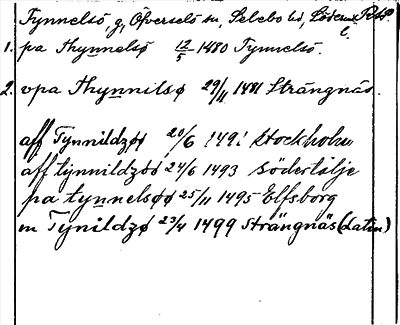 Tynnelsö g, Öfverselö sn, Selebo hd, Söderm. l.
1. pa Thynnelsø 12/5 1480 Tynnelsö.
2. vpa Thynnilsø 29/11 1481 Strängnäs.
aff Tynnildzøø 20/6 1491 Stockholm
aff tynnildzøø 24/6 1493 Södertälje
pa tynnelsøø 25/11 1495 Elfsborg
m Tynildzø 23/4 1499 Strängnäs (Latin)